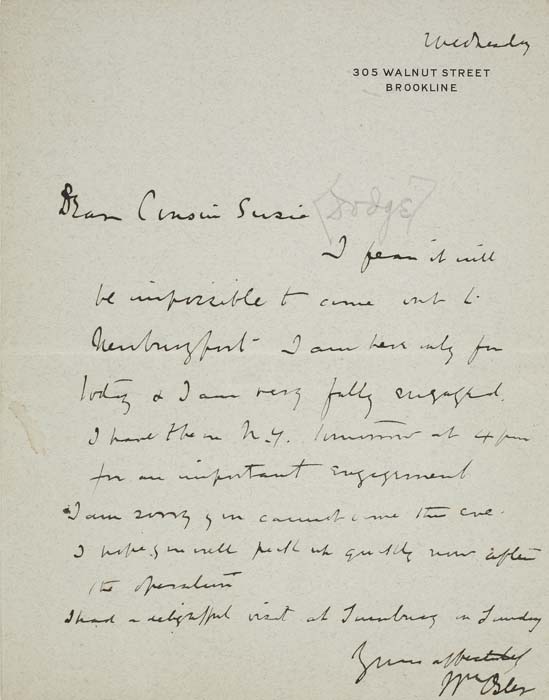 Wednesday
305 WALNUT STREET
BROOKLINE
Dear Cousin Susie [Dodge]
I fear it will
be impossible to come out to
Newburyport I am here only for
today & I am very fully engaged.
I have to be in N.Y. tomorrow at 4 pm
for an important engagement
I am sorry you cannot come this eve.
I hope you will pick up quickly now after
the operation
I had a delightful visit at on Sunday
Yours affectionately
Wm Osler